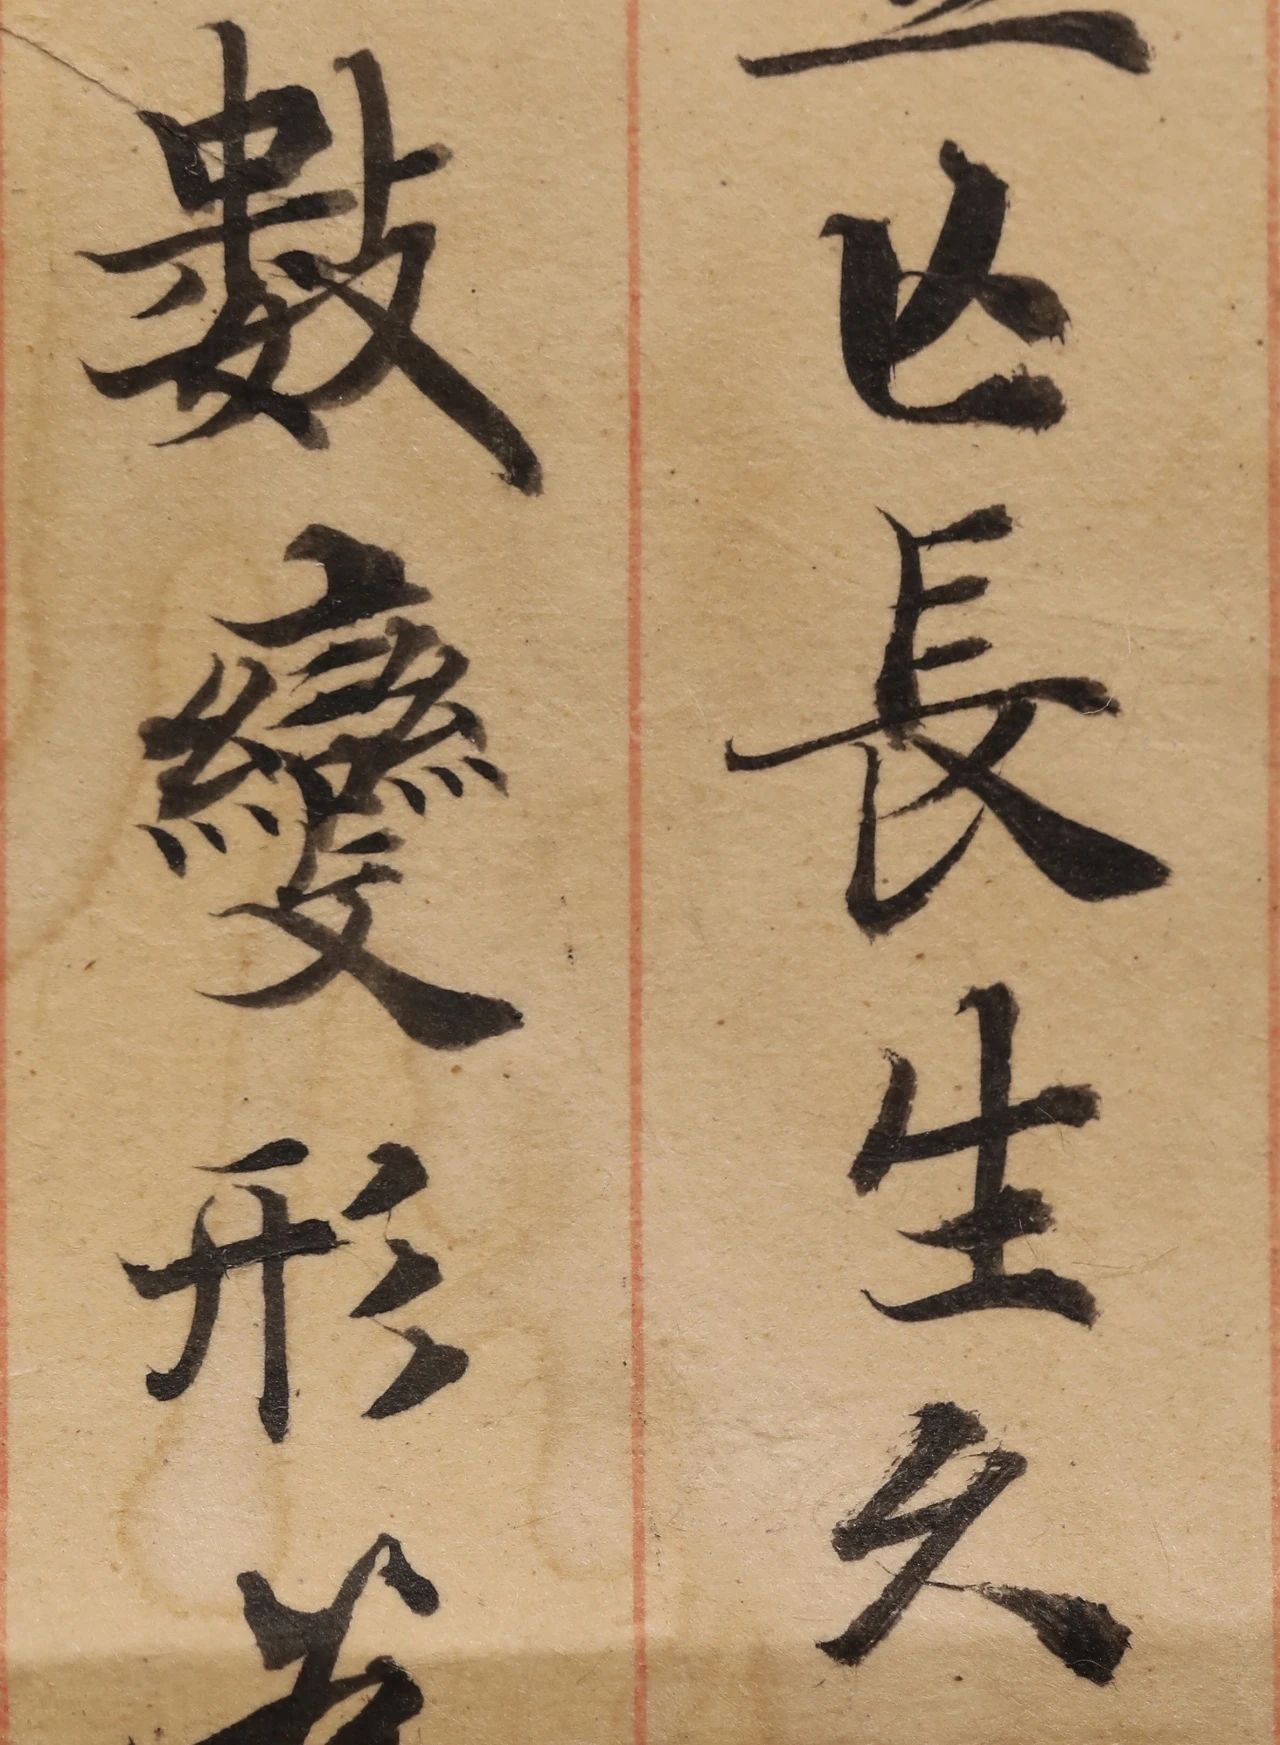 亡長生久
數變形